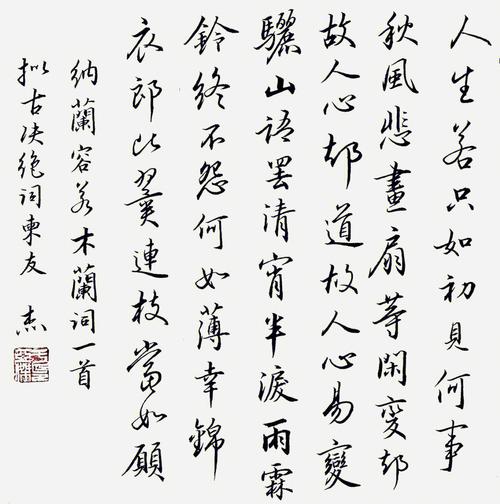 人生若只如初見何事
秋風悲畫扇等閑變却
故人心却道故人心易變
驪山語罷清宵半淚雨霖
鈴終不怨何如薄幸錦
衣郎比翼連枝當如願
納蘭容若木蘭詞一首
拟古决絕詞柬友 杰